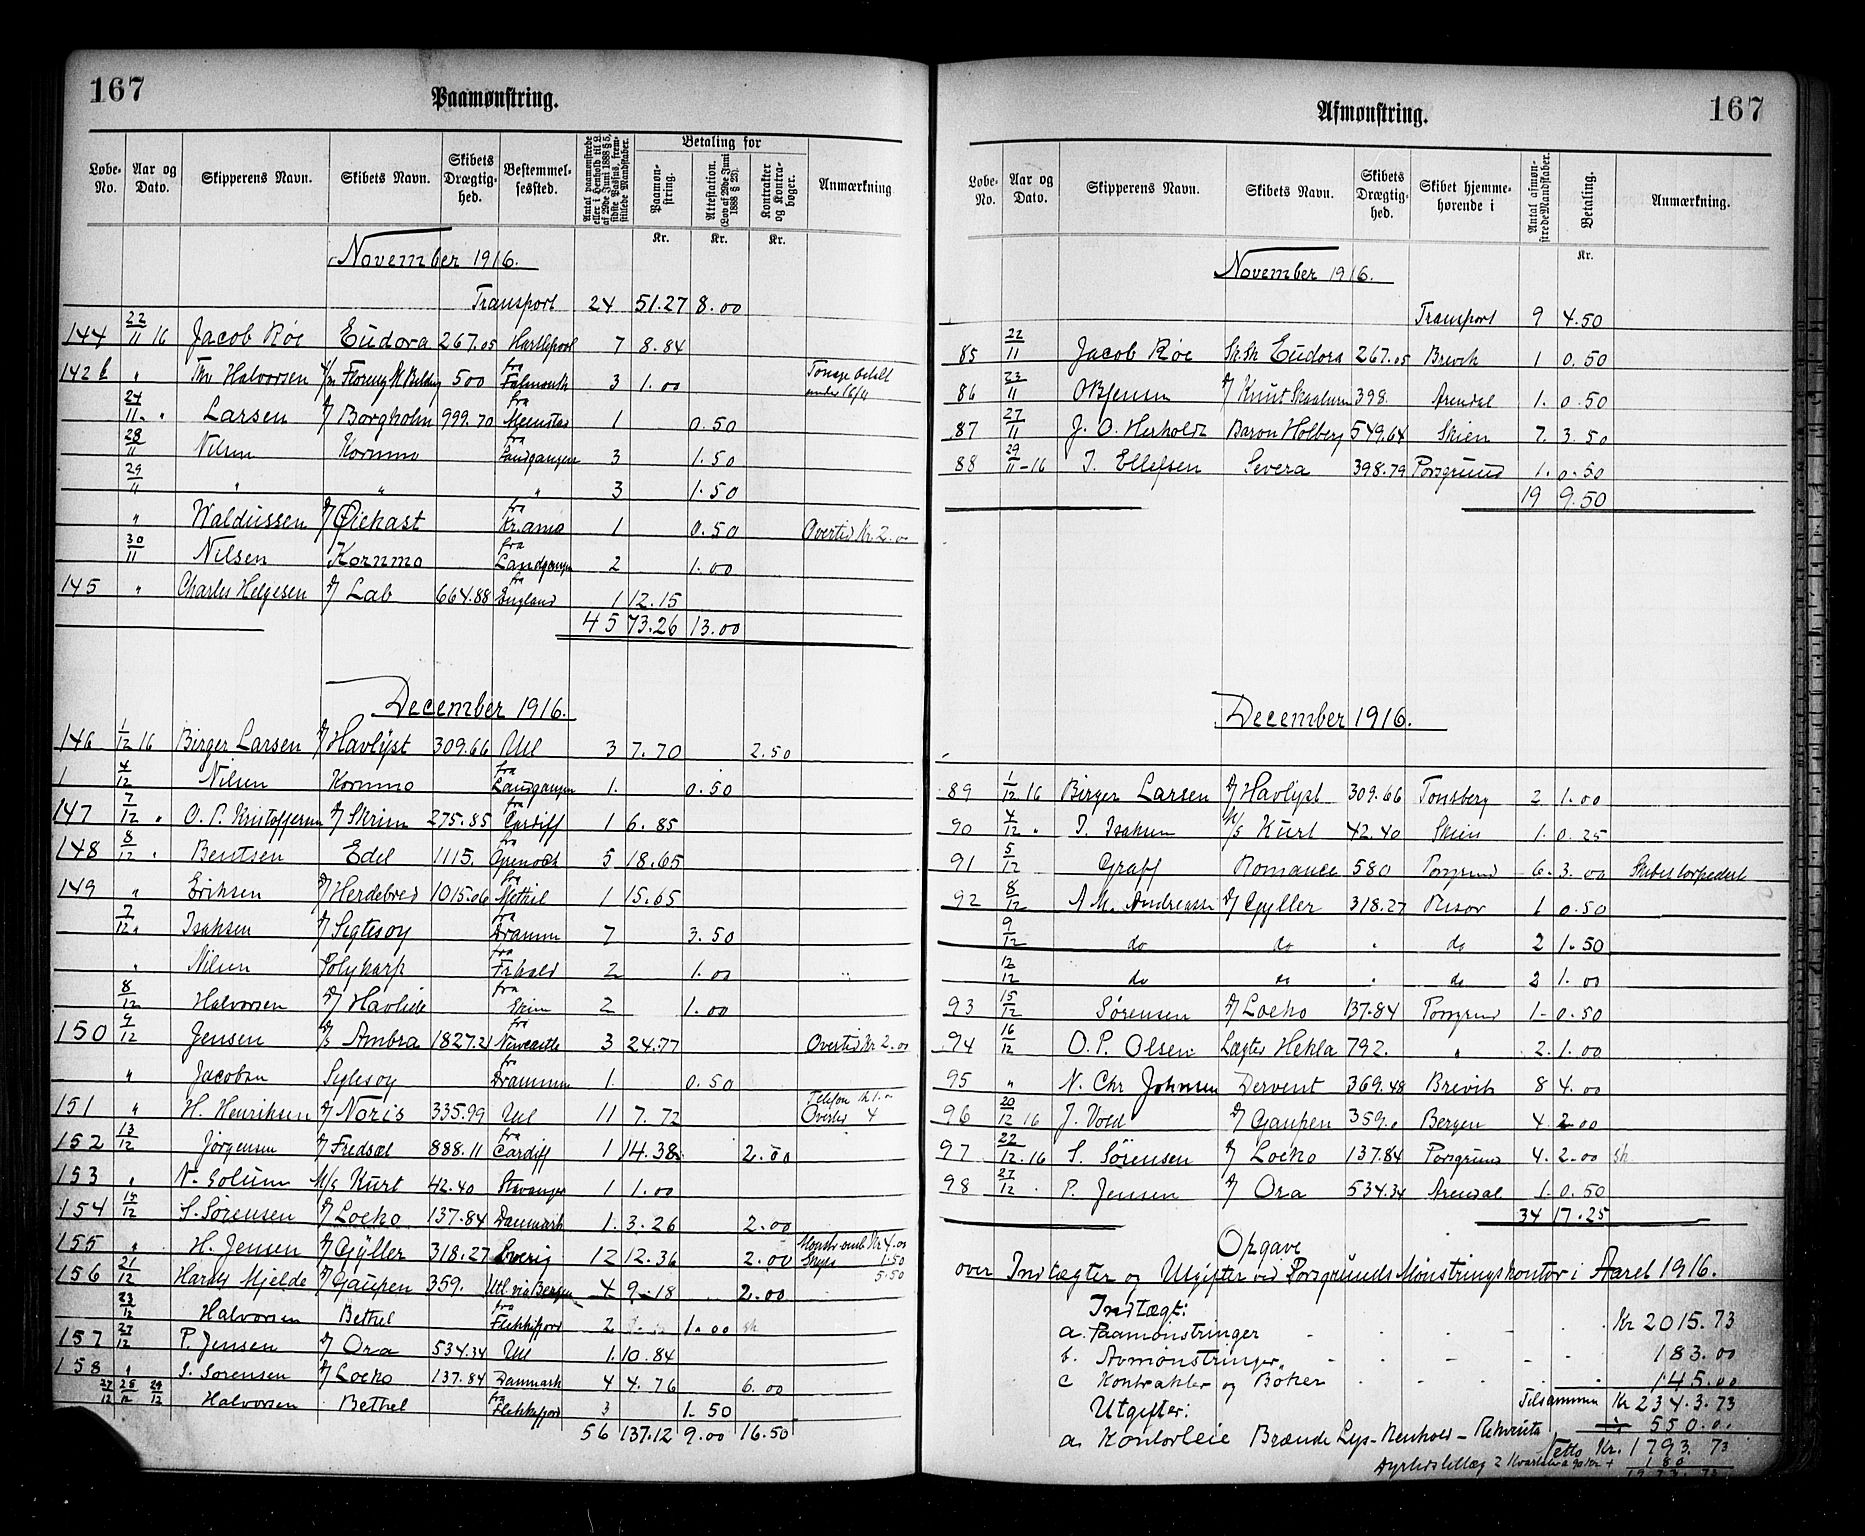 167
Paamønstring.
Løbe-No. Aar og Dato. Skipperens Navn. Skibets Navn. Skibets Drægtighed. Bestemmelsessted. Antal paamønstrede eller i Henhold til L. af 29de Juni 1888 § 5, sidste Passus, fremstillede Mandskaber. Betaling for Paamønstring. Attestation. (Lov af 29de Juni 1888 § 23). Kontrakter og Kontrabøger. Anmærkning
Kr. Kr. Kr.
November 1916.
Transport 24 51.27 8.00
144 22/11 16 Jacob Røe Eudora 267.05 Hartlepool 7 8.84
142 b " Halvorsen 500 fra Falmouth 3 1.00
24/11 " Larsen Borgholm 999.70 fra 1 0.50
28/11 Nilsen Kornmo fra Landgangen 3 1.50
29/11 " " " 3 1.50
" Waldussen D/ Øiekast fra Kr.ania 1 0.50 Overtid Kr 2.00
30/11 Nilsen Kornmo fra Landgangen 2 1.00
145 " Charles Helgesen D/ Lab 664.88 fra England 1 12.15
45 73.26 13.00
December 1916.
146 1/12 16 Birger Larsen D/ Havlyst 309.66 Utl 3 7.70 2.50
4/12 Nilsen Kornmo fra Landgangen 1. 0.50
147 7/12 " O. P. Kristoffersen D/ Skrim 275.85 fra Cardiff 1 6.85
148 8/12 Bentsen Edel 1115. Grenock 5 18.65
149 " Eriksen D/ Herdebred 1015.06 fra Methil 1 15.65
7/12 " Isaksen D/ Seglesoy fra Dramm 7 3.50
" Nilsen Polykarp fra 2 1.00
8/12 Halvorsen D/ Havlide fra Skien 2 1.00
150 9/12 Jensen D/S Ambra 1827.21 fra Newcastle 3 24.77 Overtid Kr 2.00
" Jacobsen Seglesoy fra Drammen 1. 0.50
151 " H. Henriksen D/ Noris 335.99 Utl 11 7.72 Telefon Kr 1. Overtid 4
152 13/12 Jørgensen D/ Fredsæl 888.11 fra Cardiff 1 14.38 2.00
153 " N. Solum M/S Kurt 42.40 Stavanger 1 1.00
154 15/12 S. Sørensen D/ Locko 137.84 Danmark 1. 3.26 2.00
155 " H. Jensen D/ Gyller 318.27 Sverig 12 12.36 2.00 Kr 4.00 Skyss 1.50 5.50
156 21/12 Harald Mjelde D/ Gaupen 359. Utl. via Bergen 4 9.18 2.00
23/12 Halvorsen Bethel fra Flekkefjord 2 1.00
157 27/12 P. Jensen D/ Ora 534.34 Utl 1. 10.84
158 " S. Sørensen D/ Locko 137.84 Danmark 4 4.76 6.00
27/12 28/12 29/12 Halvorsen Bethel fra Flekkefjord 3 1.50
56 137.12 9.00 16.50
Afmønstring.
167
Løbe-No. Aar og Dato. Skipperens Navn. Skibets Navn. Skibets Drægtighed. Skibet hjemmehørende i Antal afmønstrede Mandskaber. Betaling. Anmærkning.
Kr.
November 1916.
Transport 9 4.50
85 22/11 Jacob Røe Sk.Sk Eudora 267.05 Brevik 1 0.50
86 23/11 D/ Knut Skaaluren 398. Arendal 1. 0.50
87 27/11 J. O. Herholdt Baron Holberg 549.64 Skien 7. 3.50
88 29/11-16 I. Ellefsen Severa 398.79 Porsgrund 1. 0.50
19 9.50
December 1916.
89 1/12 16 Birger Larsen D/ Havlyst 309.66 Tonsberg 2 1.00
90 4/12 " I. Isaksen M/S Kurt 42.40 Skien 1. 0.25
91 5/12 Graff Romance 580 Porsgrund 6. 3.00 Skibet torpedert
92 8/12 A M. Andreasse D/ Gyller 318.27 Risør 1 0.50
9/12 do do " do 2 1.50
12/12 do do " do 2 1.00
93 15/12 Sørensen D/ Locko 137.84 Porsgrund 1- 0.50
94 16/12 O. P. Olsen Lægter Hekla 792. " 2. 1.00
95 " N. Chr Johnsen Dervent 369.48 Brevik 8 4.00
96 20/12 16 J. Vold D/ Gaupen 359.0 Bergen 4. 2.00
97 22/12.16 S. Sørensen D/ Locko 137.84 Porsgrund 4. 2.00
98 27/12 P. Jensen D/ Ora 534.34 Arendal 1. 0.50
34 17.25
Opgave
over Indtægter og Utgifter ved Porsgrunds Mønstringskontor i Aaret 1916.
Indtægt:
a. Paamønstringer Kr 2015.73
b. Avmønstringer 183.00
c Kontrakter og Bøker 145.00
Tilsammen Kr 2343.73
Utgifter:
a. Kontorleie Brænde Lys-Renhold-Rekvisita 550.00
Netto Kr. 1793.73
Dyrtidstillæg 2 Kvartaler a 90 Kr + 180
1973.73